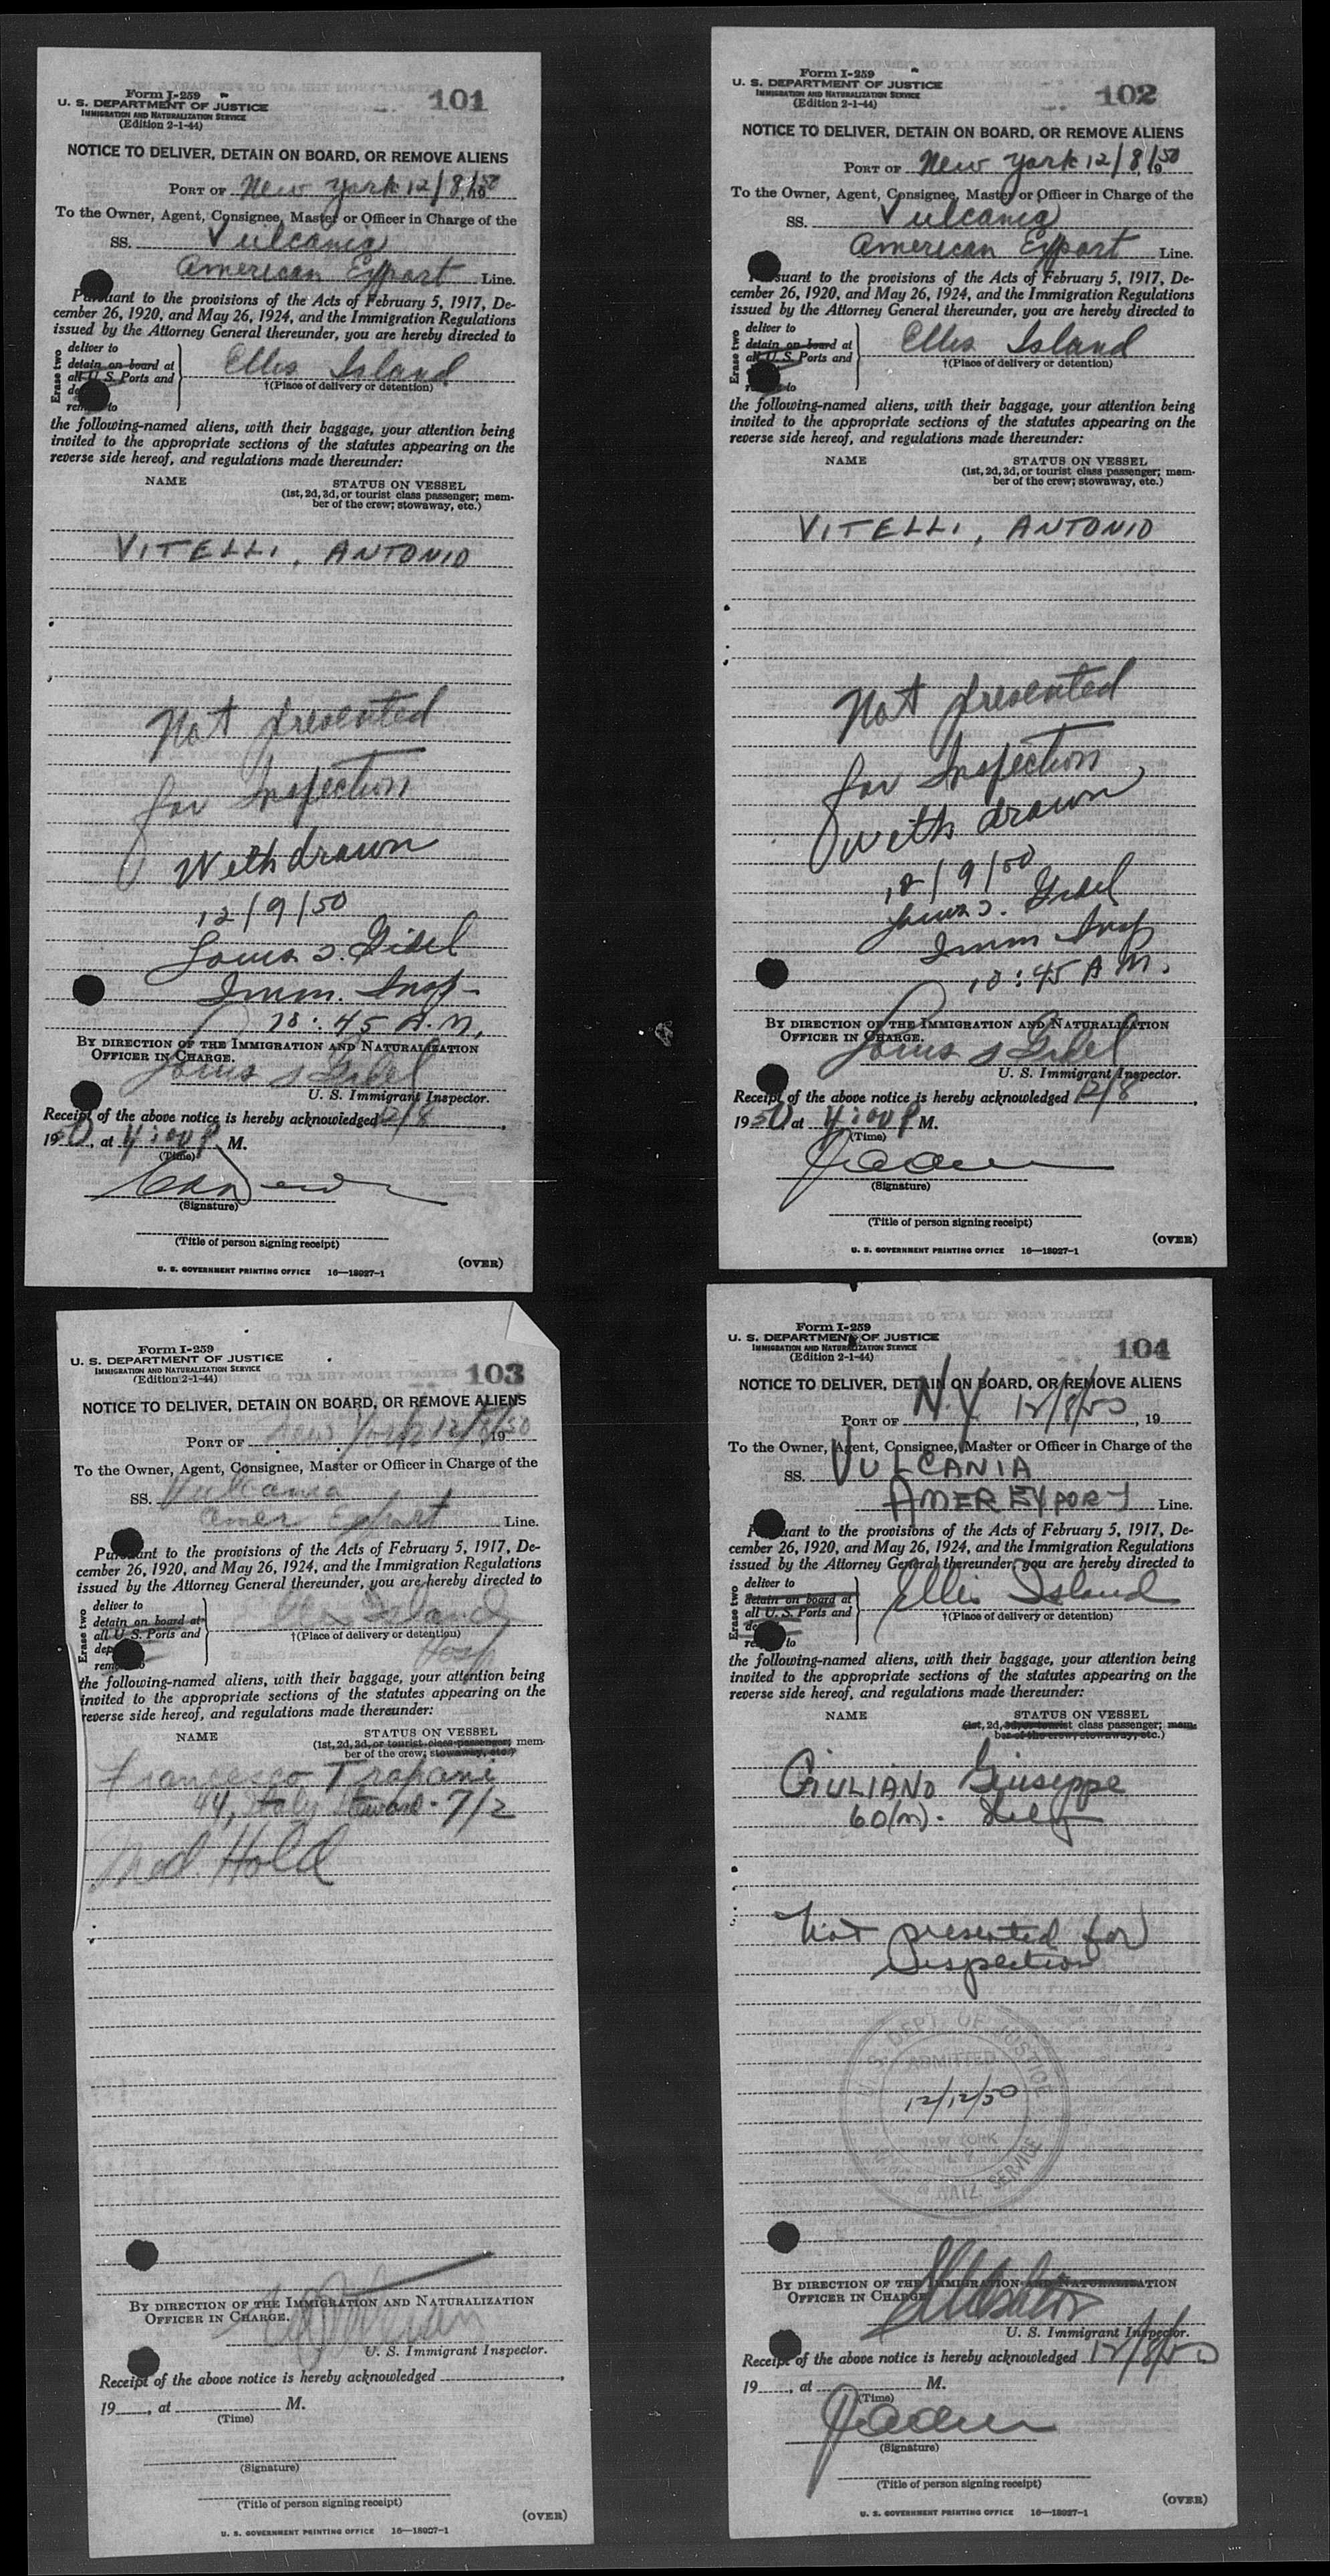 Form I-259
101
U. S. DEPARTMENT OF JUSTICE
IMMIGRATION AND NATURALIZATION SERVICE
(Edition 2-1-44)
NOTICE TO DELIVER, DETAIN ON BOARD, OR REMOVE ALIENS
PORT OF New York 12/8, 1950
To the Owner, Agent, Consignee, Master or Officer in Charge of the
SS. Vulcania
American Export Line.
Pursuant to the provisions of the Acts of February 5, 1917, De-
cember 26, 1920, and May 26, 1924, and the Immigration Regulations
issued by the Attorney General thereunder, you are hereby directed to
Erase two
deliver to
detain on board at
all U. S. Ports and
remove to
Ellis Island
†(Place of delivery or detention)
the following-named aliens, with their baggage, your attention being
invited to the appropriate sections of the statutes appearing on the
reverse side hereof, and regulations made thereunder:
NAME
STATUS ON VESSEL
(1st, 2d, 3d, or tourist class passenger; mem-
ber of the crew; stowaway, etc.)
VITELLI, ANTONIO
Not presented
for Inspection
Withdrawn
12/9/50
Louis S. Gidel
Imm. Insp-
10:45 A.M.
BY DIRECTION OF THE IMMIGRATION AND NATURALIZATION
OFFICER IN CHARGE.
Louis S Gidel
U. S. Immigrant Inspector.
Receipt of the above notice is hereby acknowledged 12/8,
1950, at 4:00 P M.
(Time)
(Signature)
(Title of person signing receipt)
(OVER)
U. S. GOVERNMENT PRINTING OFFICE 16—18027-1
Form I-259
102
U. S. DEPARTMENT OF JUSTICE
IMMIGRATION AND NATURALIZATION SERVICE
(Edition 2-1-44)
NOTICE TO DELIVER, DETAIN ON BOARD, OR REMOVE ALIENS
PORT OF New York 12/8, 1950
To the Owner, Agent, Consignee, Master or Officer in Charge of the
SS. Vulcania
American Export Line.
Pursuant to the provisions of the Acts of February 5, 1917, De-
cember 26, 1920, and May 26, 1924, and the Immigration Regulations
issued by the Attorney General thereunder, you are hereby directed to
Erase two
deliver to
detain on board at
all U. S. Ports and
remove to
Ellis Island
†(Place of delivery or detention)
the following-named aliens, with their baggage, your attention being
invited to the appropriate sections of the statutes appearing on the
reverse side hereof, and regulations made thereunder:
NAME
STATUS ON VESSEL
(1st, 2d, 3d, or tourist class passenger; mem-
ber of the crew; stowaway, etc.)
VITELLI, ANTONIO
Not presented
for Inspection
Withdrawn
12/9/50
Louis S. Gidel
Imm Insp
10:45 A M.
BY DIRECTION OF THE IMMIGRATION AND NATURALIZATION
OFFICER IN CHARGE.
Louis S Gidel
U. S. Immigrant Inspector.
Receipt of the above notice is hereby acknowledged 12/8,
1950 at 4:00 P M.
(Time)
(Signature)
(Title of person signing receipt)
(OVER)
U. S. GOVERNMENT PRINTING OFFICE 16—18027-1
Form I-259
103
U. S. DEPARTMENT OF JUSTICE
IMMIGRATION AND NATURALIZATION SERVICE
(Edition 2-1-44)
NOTICE TO DELIVER, DETAIN ON BOARD, OR REMOVE ALIENS
PORT OF New York 12/8/1950
To the Owner, Agent, Consignee, Master or Officer in Charge of the
SS. Vulcania
Amer Export Line.
Pursuant to the provisions of the Acts of February 5, 1917, De-
cember 26, 1920, and May 26, 1924, and the Immigration Regulations
issued by the Attorney General thereunder, you are hereby directed to
Erase two
deliver to
detain on board at
all U. S. Ports and
remove to
Ellis Island
†(Place of delivery or detention)
Hosp
the following-named aliens, with their baggage, your attention being
invited to the appropriate sections of the statutes appearing on the
reverse side hereof, and regulations made thereunder:
NAME
STATUS ON VESSEL
(1st, 2d, 3d, or tourist class passenger; mem-
ber of the crew; stowaway, etc.)
Francesco Trapani
44, Italy Steward - 7/2
Med. Hold
BY DIRECTION OF THE IMMIGRATION AND NATURALIZATION
OFFICER IN CHARGE.
U. S. Immigrant Inspector.
Receipt of the above notice is hereby acknowledged
19, at M.
(Time)
(Signature)
(Title of person signing receipt)
(OVER)
U. S. GOVERNMENT PRINTING OFFICE 16—18027-1
Form I-259
104
U. S. DEPARTMENT OF JUSTICE
IMMIGRATION AND NATURALIZATION SERVICE
(Edition 2-1-44)
NOTICE TO DELIVER, DETAIN ON BOARD, OR REMOVE ALIENS
PORT OF N.Y 12/8/50, 19
To the Owner, Agent, Consignee, Master or Officer in Charge of the
SS. VULCANIA
AMER EXPORT Line.
Pursuant to the provisions of the Acts of February 5, 1917, De-
cember 26, 1920, and May 26, 1924, and the Immigration Regulations
issued by the Attorney General thereunder, you are hereby directed to
Erase two
deliver to
detain on board at
all U. S. Ports and
remove to
Ellis Island
†(Place of delivery or detention)
the following-named aliens, with their baggage, your attention being
invited to the appropriate sections of the statutes appearing on the
reverse side hereof, and regulations made thereunder:
NAME
STATUS ON VESSEL
(1st, 2d, 3d, or tourist class passenger; mem-
ber of the crew, stowaway, etc.)
GIULIANO Giuseppe
60(m). Italy
Not presented for
Inspection
U.S. DEPT. OF JUSTICE
ADMITTED
12/12/50
NEW YORK
NATZ. SERVICE
BY DIRECTION OF THE IMMIGRATION AND NATURALIZATION
OFFICER IN CHARGE
U. S. Immigrant Inspector.
Receipt of the above notice is hereby acknowledged 12/8/50
19, at M.
(Time)
(Signature)
(Title of person signing receipt)
(OVER)
U. S. GOVERNMENT PRINTING OFFICE 16—18027-1